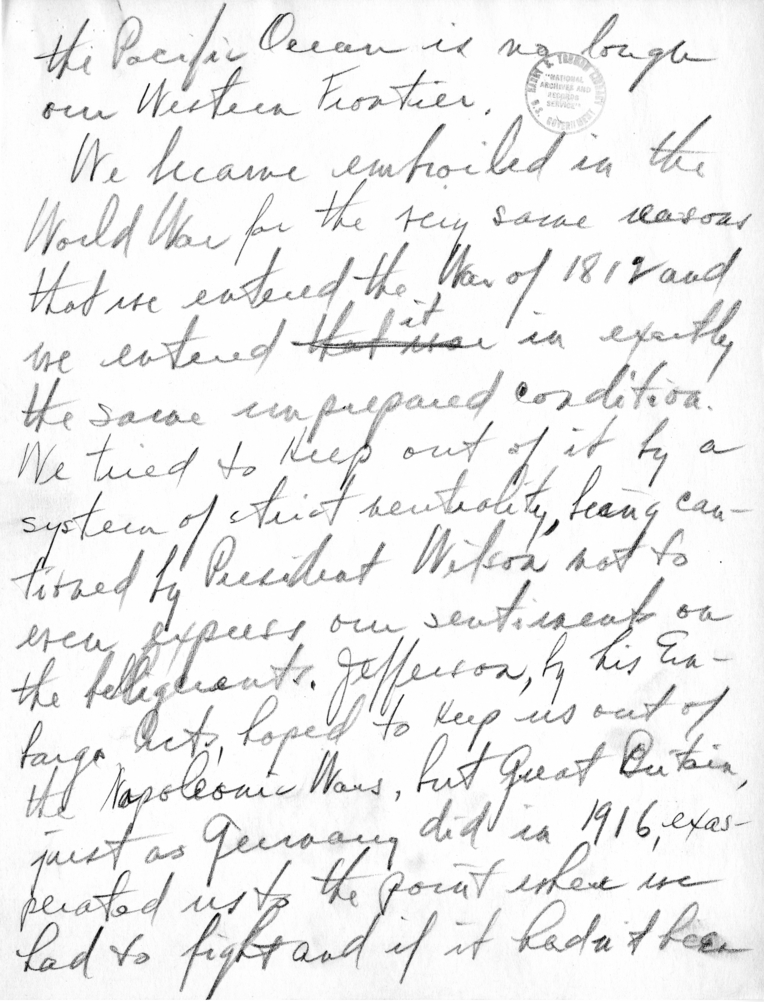 the Pacific Ocean is no longer
our Western Frontier.
HARRY S. TRUMAN LIBRARY
"NATIONAL
ARCHIVES AND
RECORDS
SERVICE"
We became embroiled in the
World War for the very same reasons
that we entered the War of 1812 and
it
we entered that war in exactly
the same unprepared condition.
We tried to keep out of it by a
system of strict neutrality, being cau-
tioned by President Wilson not to
even express our sentiments on
the belligerents. Jefferson, by his Em-
bargo Acts, hoped to keep us out of
the Napoleonic Wars, but Great Britain,
just as Germany did in 1916, exas-
perated us to the point where we
had to fight and if it hadn't been